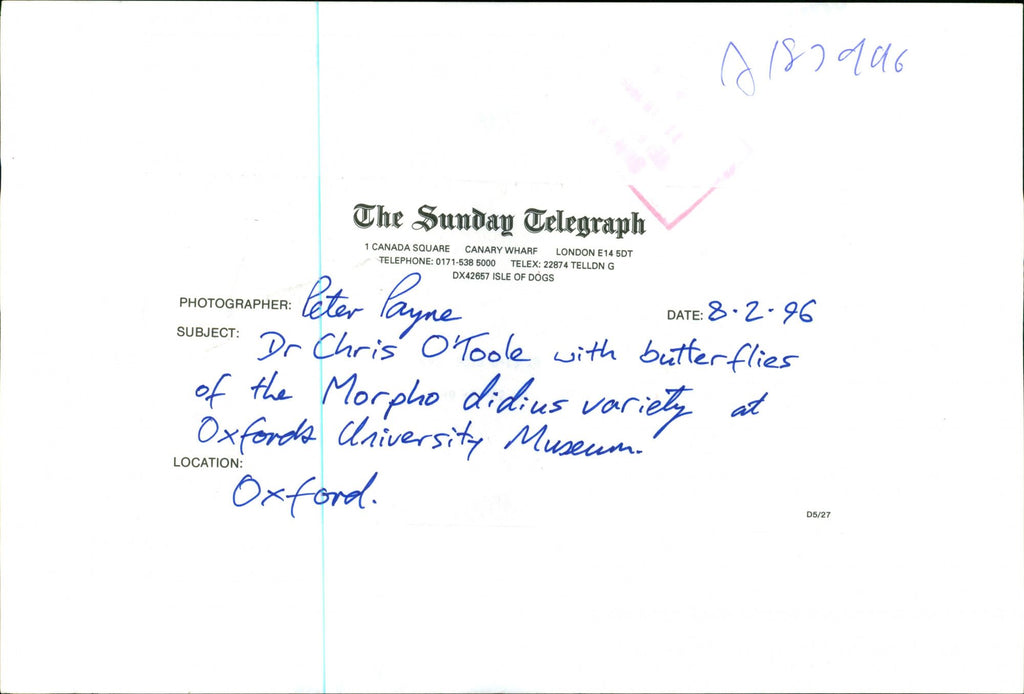 The Sunday Telegraph
1 CANADA SQUARE CANARY WHARF LONDON E14 5DT
TELEPHONE: 0171-538 5000 TELEX: 22874 TELLDN G
DX42657 ISLE OF DOGS
PHOTOGRAPHER: Peter Payne DATE: 8.2.96
SUBJECT: Dr Chris O'Toole with butterflies
of the Morpho didius variety at
Oxfords University Museum.
LOCATION:
Oxford.
D5/27